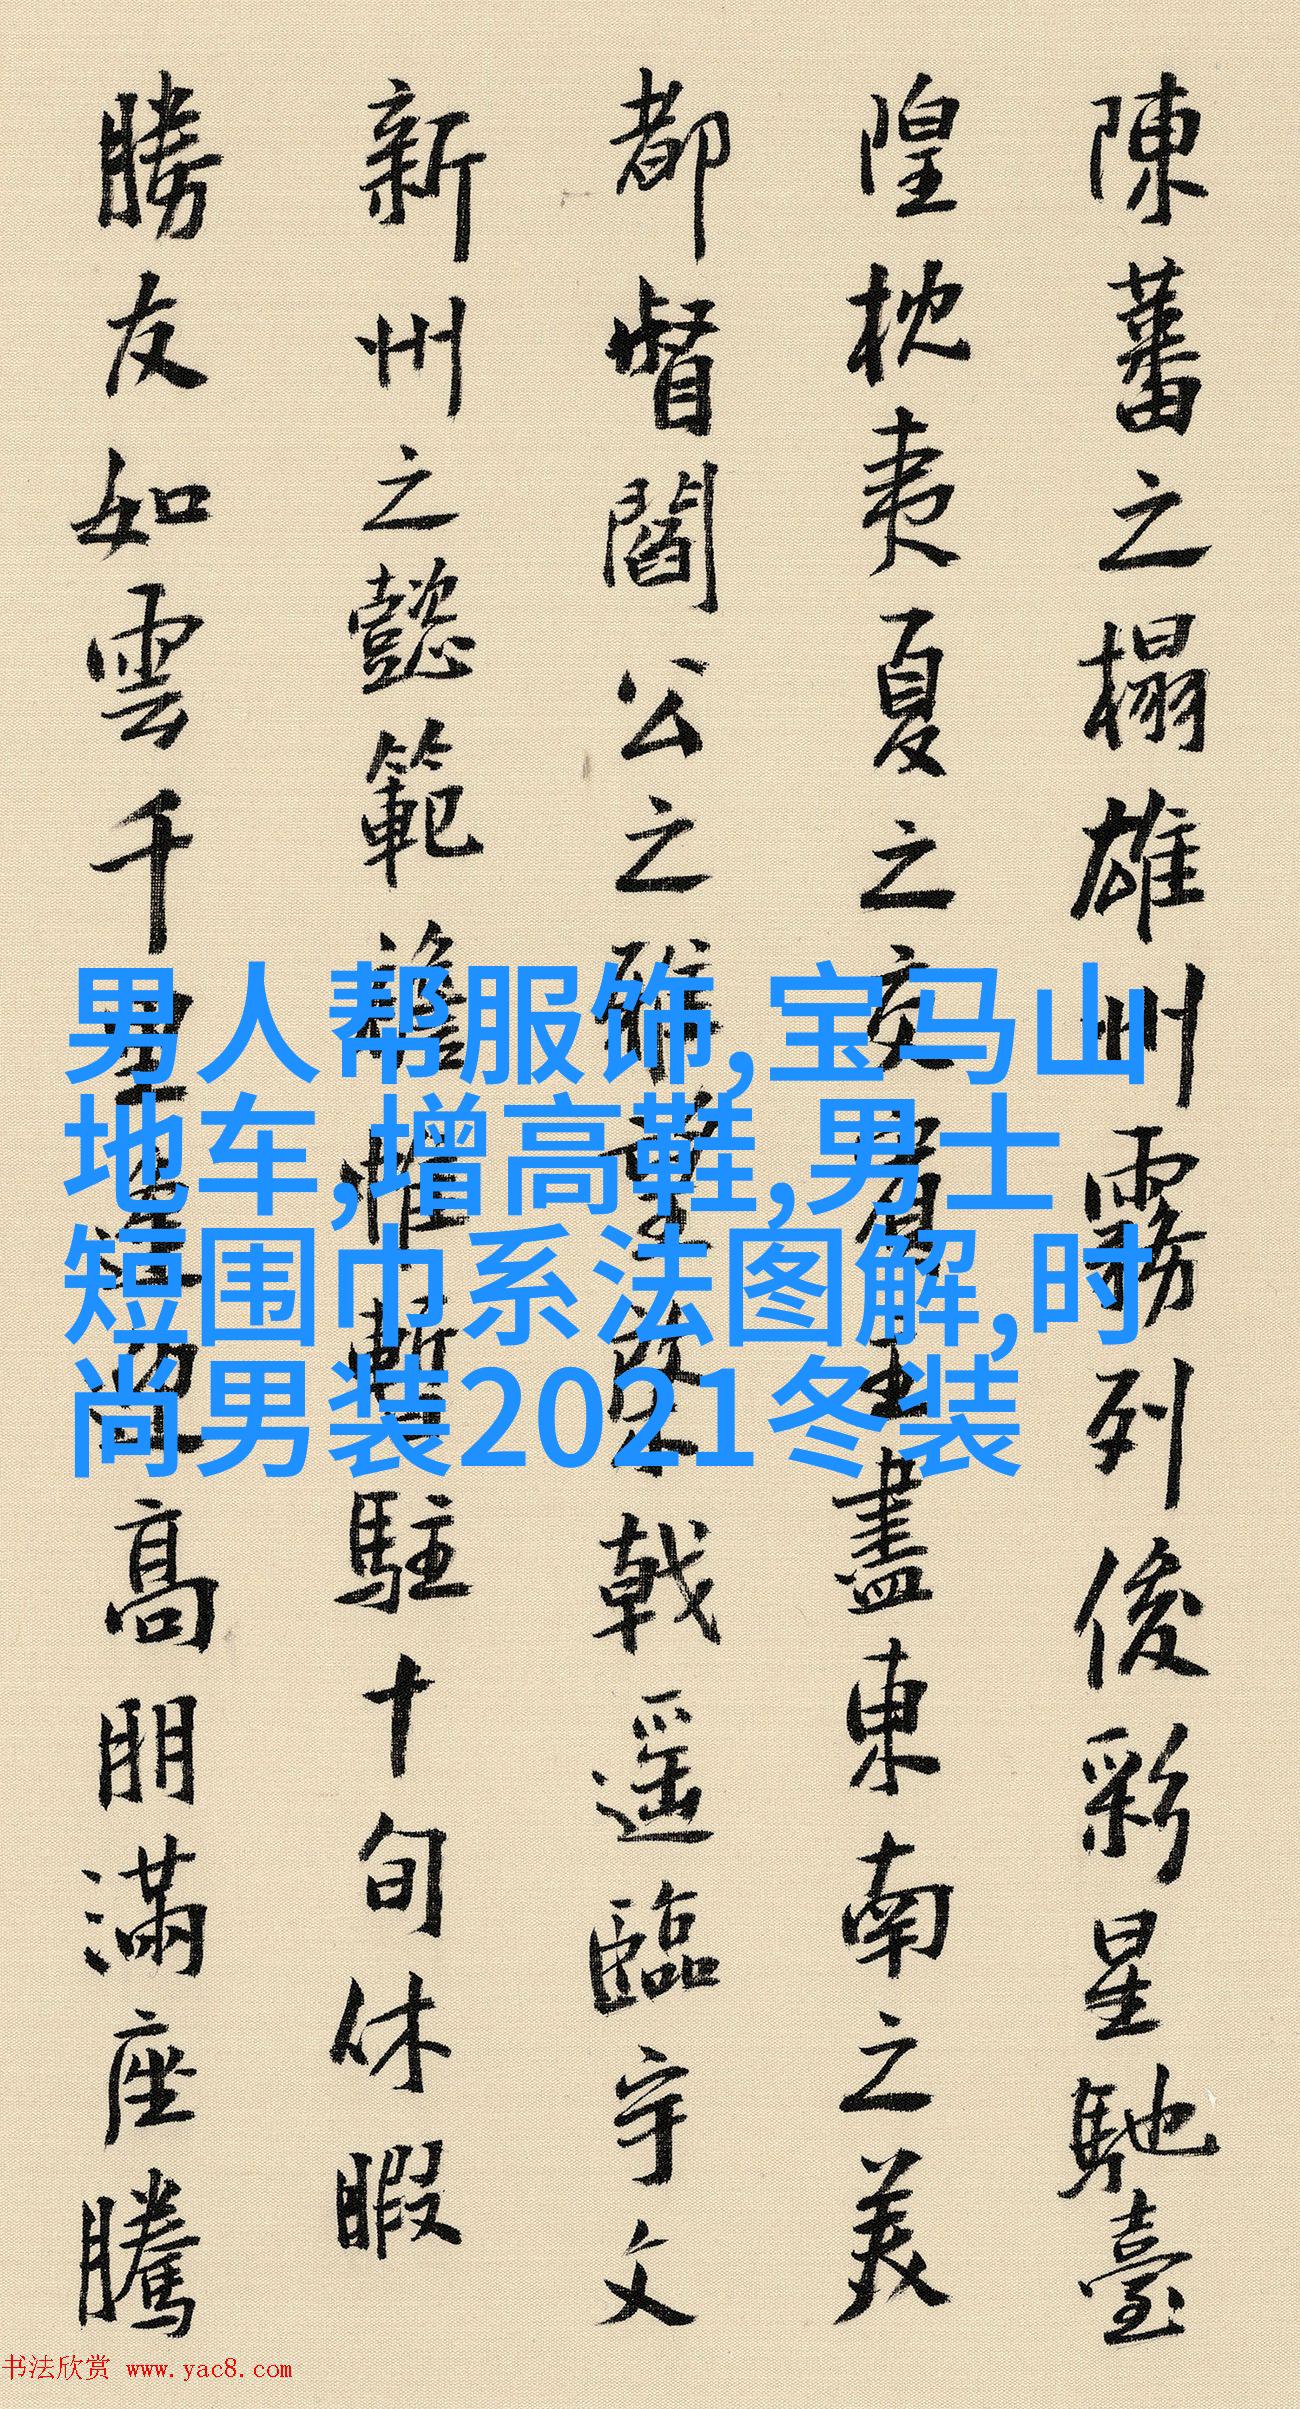 陳蕃之榻雄州霧列俊彩星馳臺
隍枕夷夏之交賓主盡東南之美
都督閻公之雅望棨戟遥臨宇文
新州之懿範襜帷暫駐十旬休暇
勝友如雲千里逢迎高朋滿座騰
男人帮服饰,宝马山
地车,增高鞋,男士
短围巾系法图解,时
尚男装2021冬装
书法欣赏 www.yac8.com